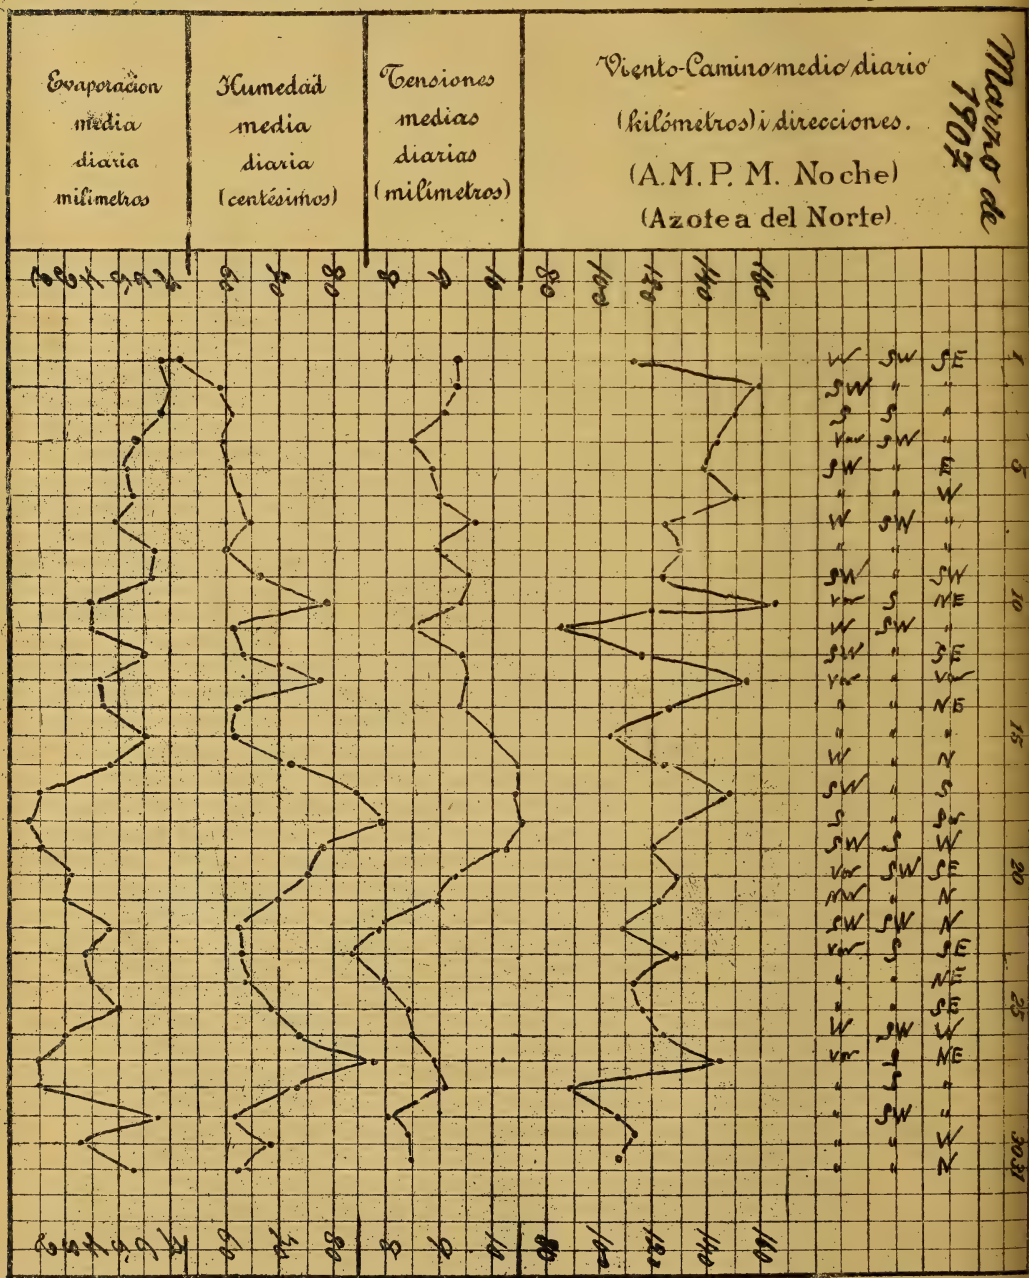 Evaporación
media
diaria
milímetros
Humedad
media
diaria
(centésimos)
Tensiones
medias
diarias
(milímetros)
Viento-Camino medio diario
(kilómetros) i direcciones.
(A.M. P. M. Noche)
(Azotea del Norte)
Marzo de
1907
2 3 4 5 6 7 60 70 80 8 9 10 80 100 120 140 160
W SW SE 1
SW " "
S S "
var SW "
SW " E 5
" " W
W SW "
" " "
SW " SW
var S NE 10
W SW "
SW " SE
var " var
" " NE
" " " 15
W " N
SW " S
S "
SW S W
var SW SE 20
NW " N
SW SW N
var S SE
" " NE
" " SE 25
W SW W
var NE
" "
" SW "
" " W 30
" " N 31
2 3 4 5 6 7 60 70 80 8 9 10 80 100 120 140 160